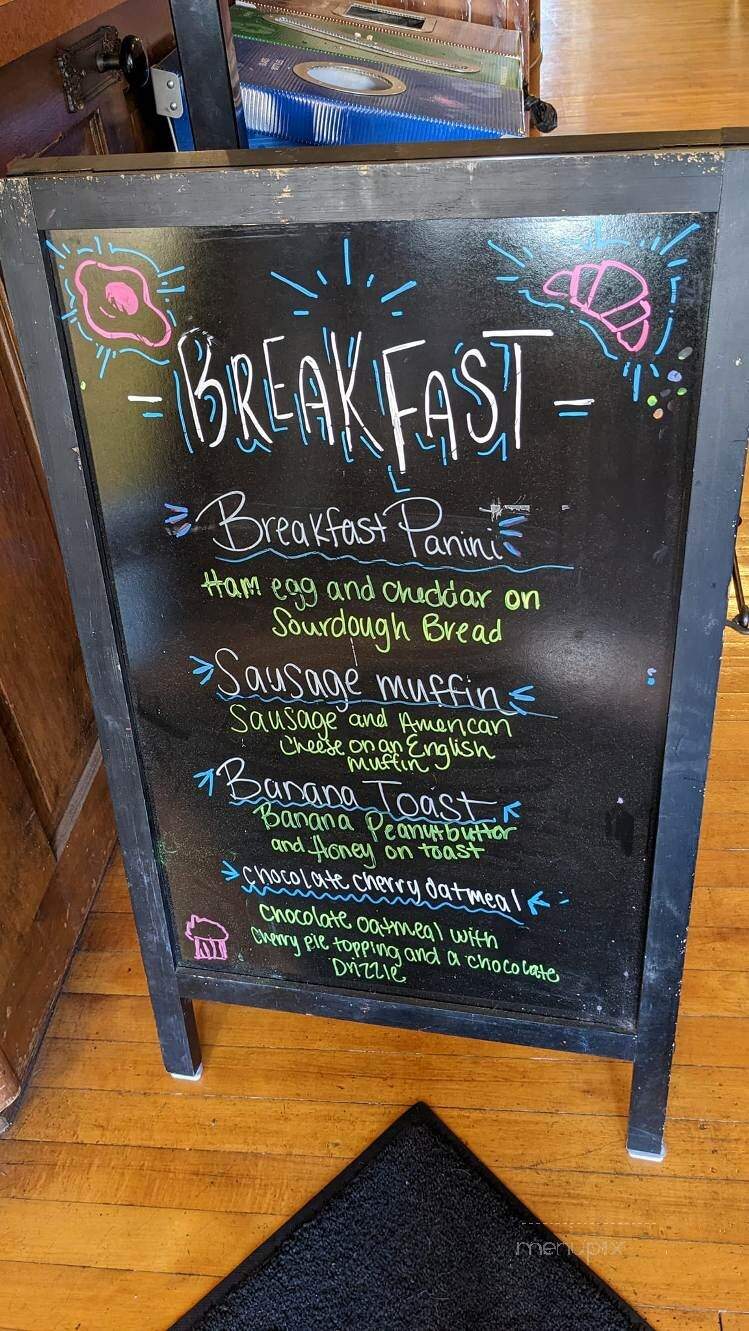 - BREAKFAST -
Breakfast Panini
Ham egg and cheddar on
Sourdough Bread
Sausage muffin
Sausage and American
Cheese on an English
muffin
Banana Toast
Banana Peanutbutter
and Honey on toast
chocolate cherry oatmeal
Chocolate oatmeal with
Cherry pie topping and a chocolate
Drizzle
menupix